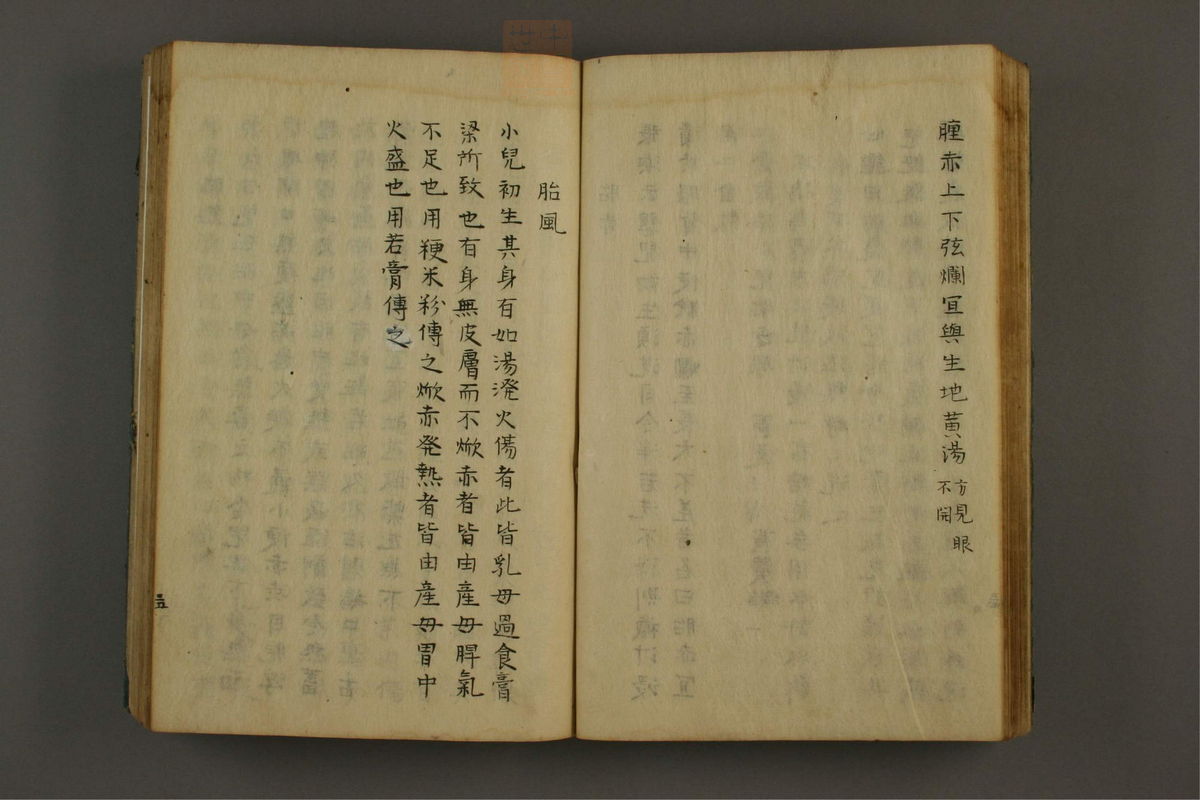 腫赤上下弦爛宜與生地黄湯方見眼
不開
胎風
小兒初生其身有如湯溌火傷者此皆乳母過食膏
梁所致也有身無皮膚而不焮赤者皆由産母脾氣
不足也用粳米粉傅之焮赤発熱者皆由産母胃中
火盛也用若膏傅之
五